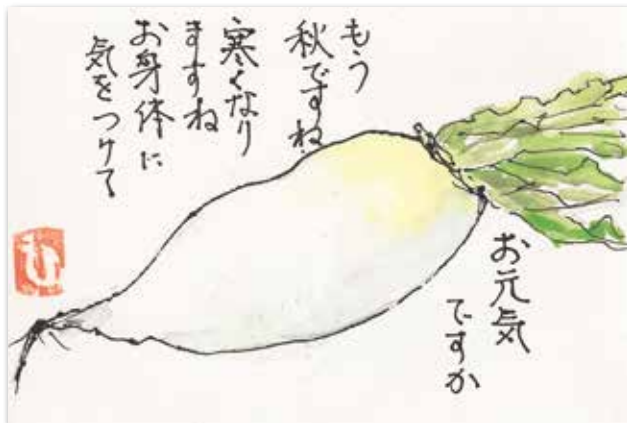 もう
秋ですね
寒くなり
ますね
お身体に
気をつけて
お元気
ですか
ひ